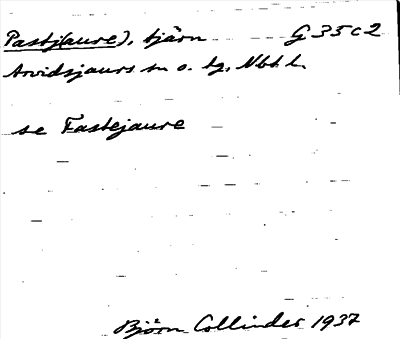 Pastj(aure), tjärn G 35 c 2
Arvidsjaurs sn o. tg, Nbt. l.
se Fastejaure
Björn Collinder 1937